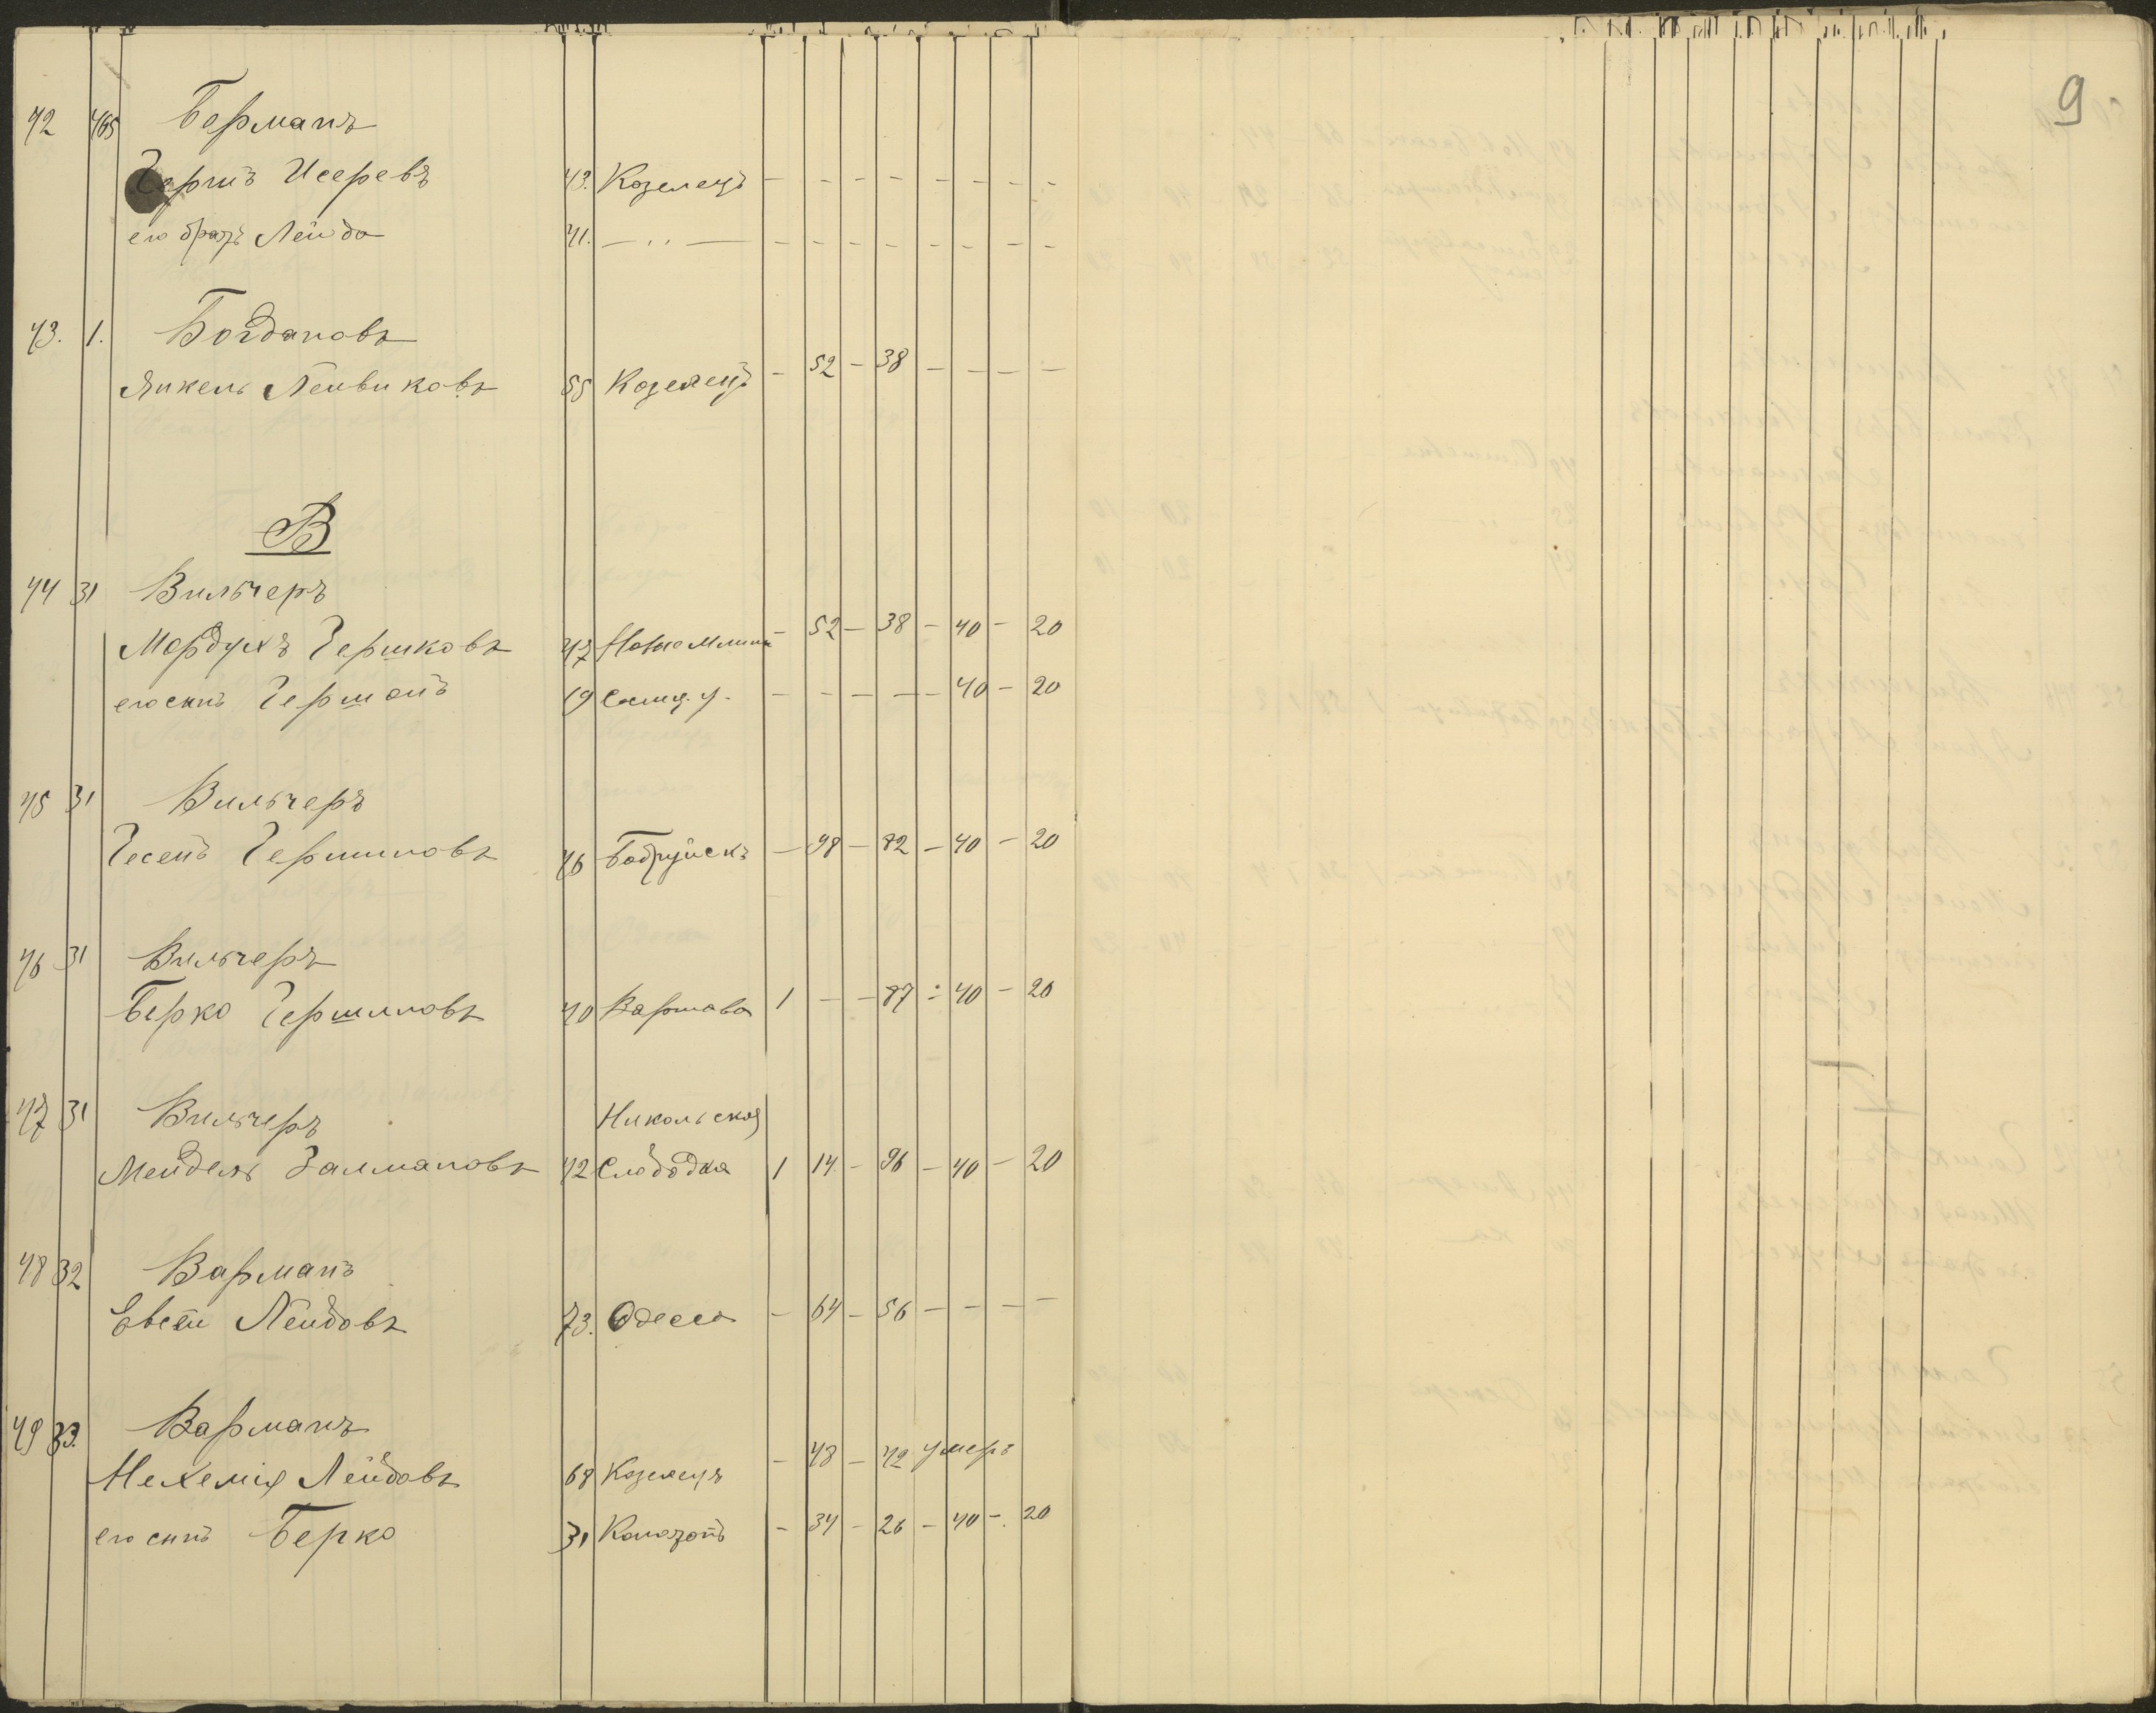 9
42 465 Берманъ
Гершъ Исеровъ 43. Козелецъ - - - - - - - -
его братъ Лейба 41. — ,, — - - - - - - - -
43. 1. Богдановъ
Янкель Лейвиковъ 55 Козелецъ - 52 - 38 - - - -
В
44 31 Вильчеръ
Мордухъ Гершковъ 47 Новомлин - 52 - 38 - 40 - 20
его сынъ Гершонъ 19 - - - - - 40 - 20
45 31 Вильчеръ
Гесель Гершиновъ 46 Бобруйскъ - 98 - 82 - 40 - 20
46 31 Вильчеръ
Берко Гершиновъ 40 Варшава 1 - - 87 - 40 - 20
47 31 Вильчеръ Никольская
Мендель Залмановъ 42 Слободка 1 14 - 96 - 40 - 20
48 32 Варманъ
Евсей Лейбовъ 73. Одесса - 64 - 56 - - - -
49 33. Варманъ
Нехемія Лейбовъ 68 Козелецъ - 48 - 42 умеръ
его сынъ Берко 31 Конотопъ - 34 - 26 - 40 - 20